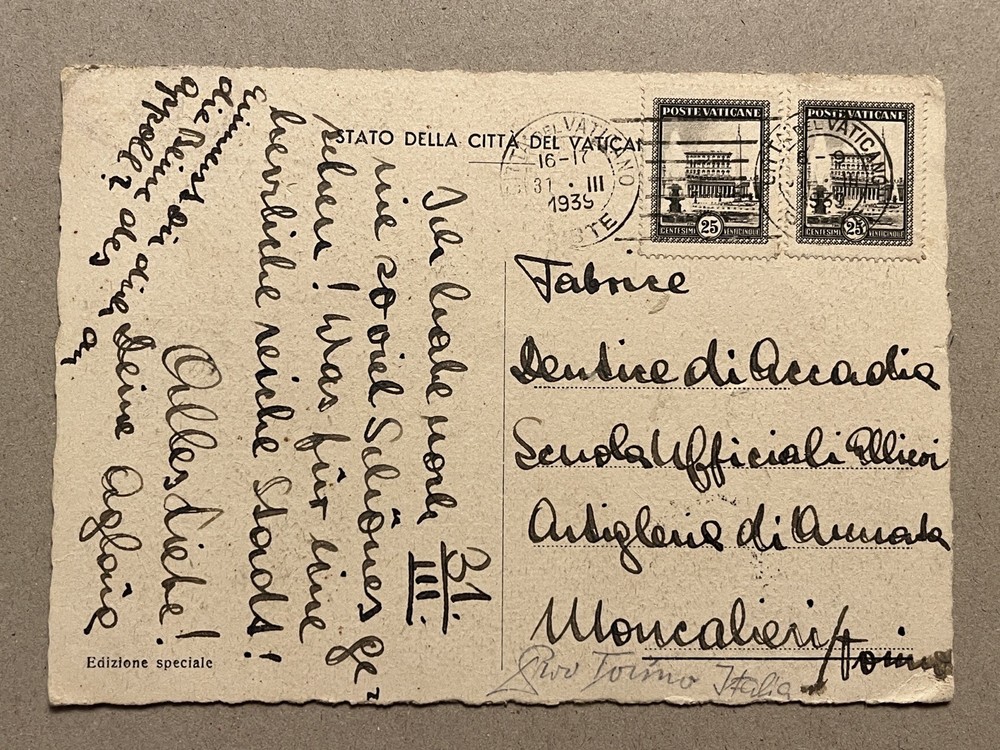 STATO DELLA CITTÀ DEL VATICAN
CITTÀ DEL VATICANO
16-17
31 · III
1939
POSTE
POSTE VATICANE
CENTESIMI 25 VENTICINQUE
POSTE VATICANE
CENTESIMI 25 VENTICINQUE
CITTÀ DEL VATICANO
1939
31.
III.
Ich habe noch
nie so viel Schönes ge-
sehen! Was für eine
herrliche reiche Stadt!
Alles Liebe!
Deine Aglaïa
Erinnerst Du Dich an
die Beine des
Apoll?
Fabrice
Dentice di Accadia
Scuola Ufficiali Allievi
Artiglieria di Armata
Moncalieri/Torino
Torino Italia
Edizione speciale